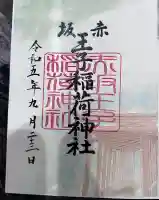 赤坂
王子稲荷神社
令和五年九月二三日